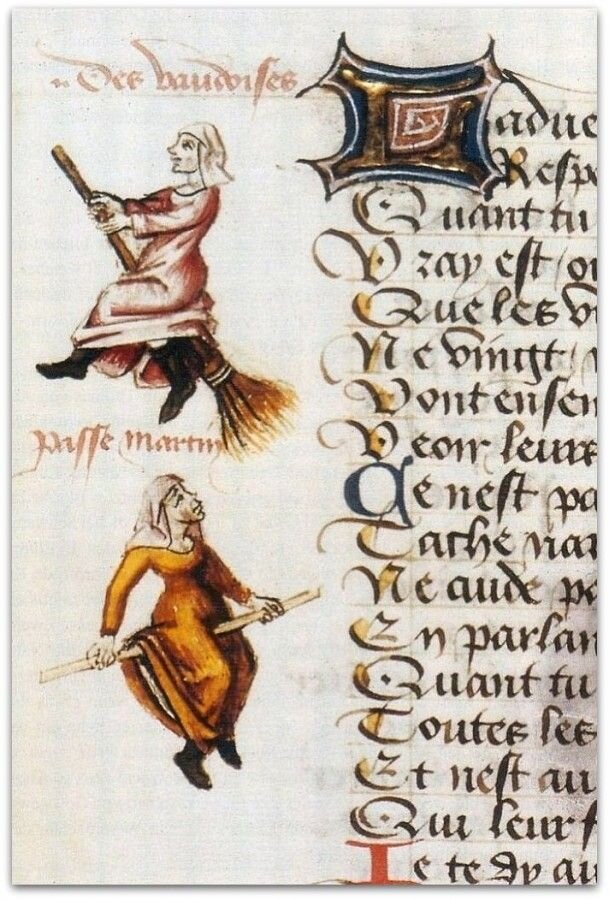 Des vaudoises
passe martin
Ladue
Respo
Quant tu
Vray est / ou
Que les v
Ne vingt /
Vont ensem
Veoir leurs
Ce nest pa
Tache nar
Ne aude po
En parlan
Quant tu
Toutes les
Et nest au
Qui leur f
Je te dy au